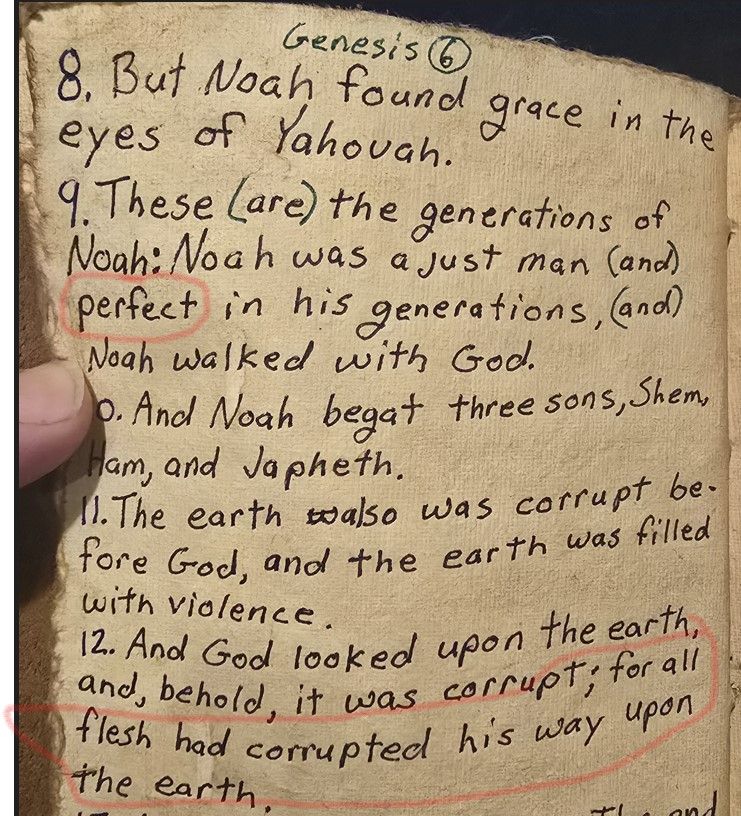 Genesis 6
8. But Noah found grace in the
eyes of Yahovah.
9. These (are) the generations of
Noah: Noah was a just man (and)
perfect in his generations, (and)
Noah walked with God.
0. And Noah begat three sons, Shem,
Ham, and Japheth.
11. The earth also was corrupt be-
fore God, and the earth was filled
with violence.
12. And God looked upon the earth,
and, behold, it was corrupt; for all
flesh had corrupted his way upon
the earth.